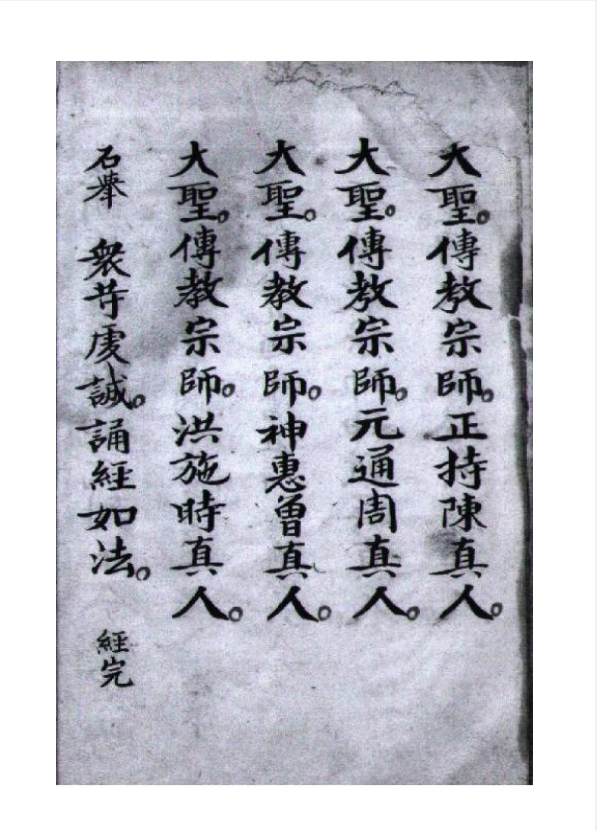 大聖。傳教宗師。正持陳真人。
大聖。傳教宗師。元通周真人。
大聖。傳教宗師。神惠曾真人。
大聖。傳教宗師。洪施時真人。
右舉 衆等虔誠。誦經如法。 經完